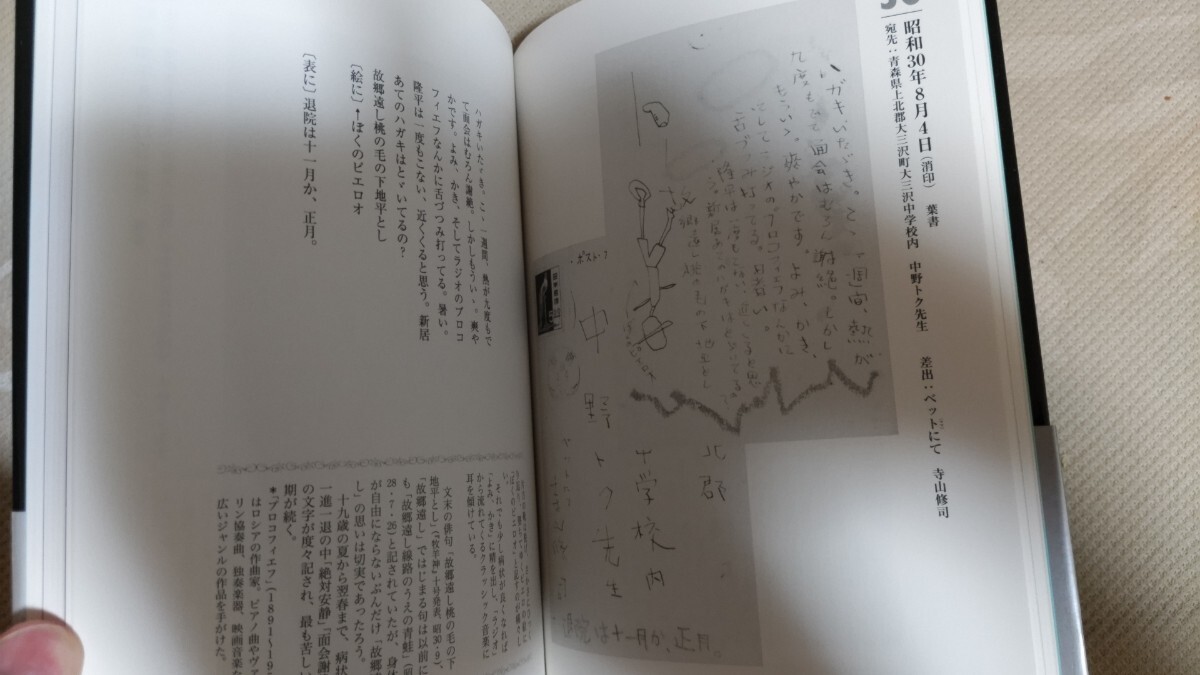 昭和30年8月4日(消印) 葉書
宛先:青森県上北郡大三沢町大三沢中学校内 中野トク先生 差出:ベットにて 寺山修司
ハガキいたゞき。こゝ一週間、熱が
九度もで面会はむろん謝絶。しかし
もういゝ。爽やかです。よみ、かき、
そしてラジオのプロコフィエフなんかに
舌づつみ打ってる。暑い。
隆平は一度もこない、近くくると思
う。新居あてのハガキはとゞいてる?
故郷遠し桃の毛の下地平とし
ポスト・フ
中野トク先生
中学校内
北郡
退院は十一月か、正月。
ハガキいたゞき。こゝ一週間、熱が九度もで
て面会はむろん謝絶。しかしもういゝ。爽や
かです。よみ、かき、そしてラジオのプロコ
フィエフなんかに舌づつみ打ってる。暑い。
隆平は一度もこない、近くくると思う。新居
あてのハガキはとゞいてるの?
故郷遠し桃の毛の下地平とし
〔絵に〕↑ぼくのピエロオ
〔表に〕退院は十一月か、正月。
い。それでも少し病状が良くなれば
「よみ、かき」に精を出し、「ラジオ」
から流れてくるクラッシック音楽に
耳を傾けている。
文末の俳句「故郷遠し桃の毛の下
地平とし」(『牧羊神』十号発表、昭30・9)、
「故郷遠し」ではじまる句は以前に
も「故郷遠し線路のうえの青蛙」(昭
28・7・26)と記されていたが、身体
が自由にならないぶんだけ「故郷遠
し」の思いは切実であったろう。
十九歳の夏から翌春まで、病状
一進一退の中「絶対安静」「面会謝
の文字が度々記され、最も苦しい
期が続く。
*「プロコフィエフ」(1891〜19
はロシアの作曲家。ピアノ曲やヴァ
リン協奏曲、独奏楽器、映画音楽な
広いジャンルの作品を手がけた。